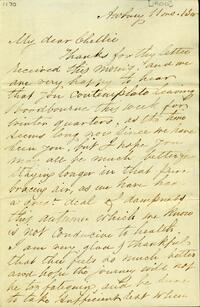 My dear Chellie
Thanks for thy letter
received this morng. and we
are very happy to hear
that you contemplate leaving
Woodbourne this week for
winter quarters, as the time
seems long now since we have
seen you, but I hope you
may all be much better for
staying longer in that fine
bracing air, as we have had
a great deal of dampness
this autumn which we know
is not conducive to health.
I am very glad & thankful
that thee feels so much better
and hope the journey will not
be too fatiguing, and be sure
to take sufficient rest when